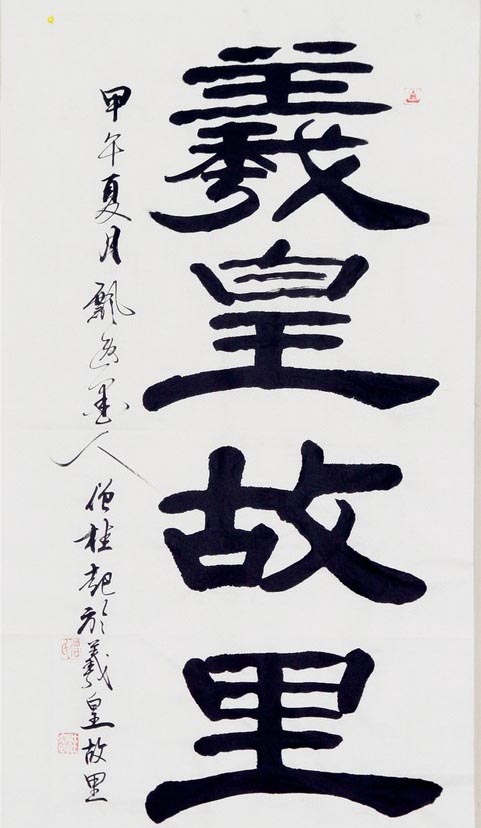 羲皇故里
甲午夏月飘逸墨人僧桂起於羲皇故里